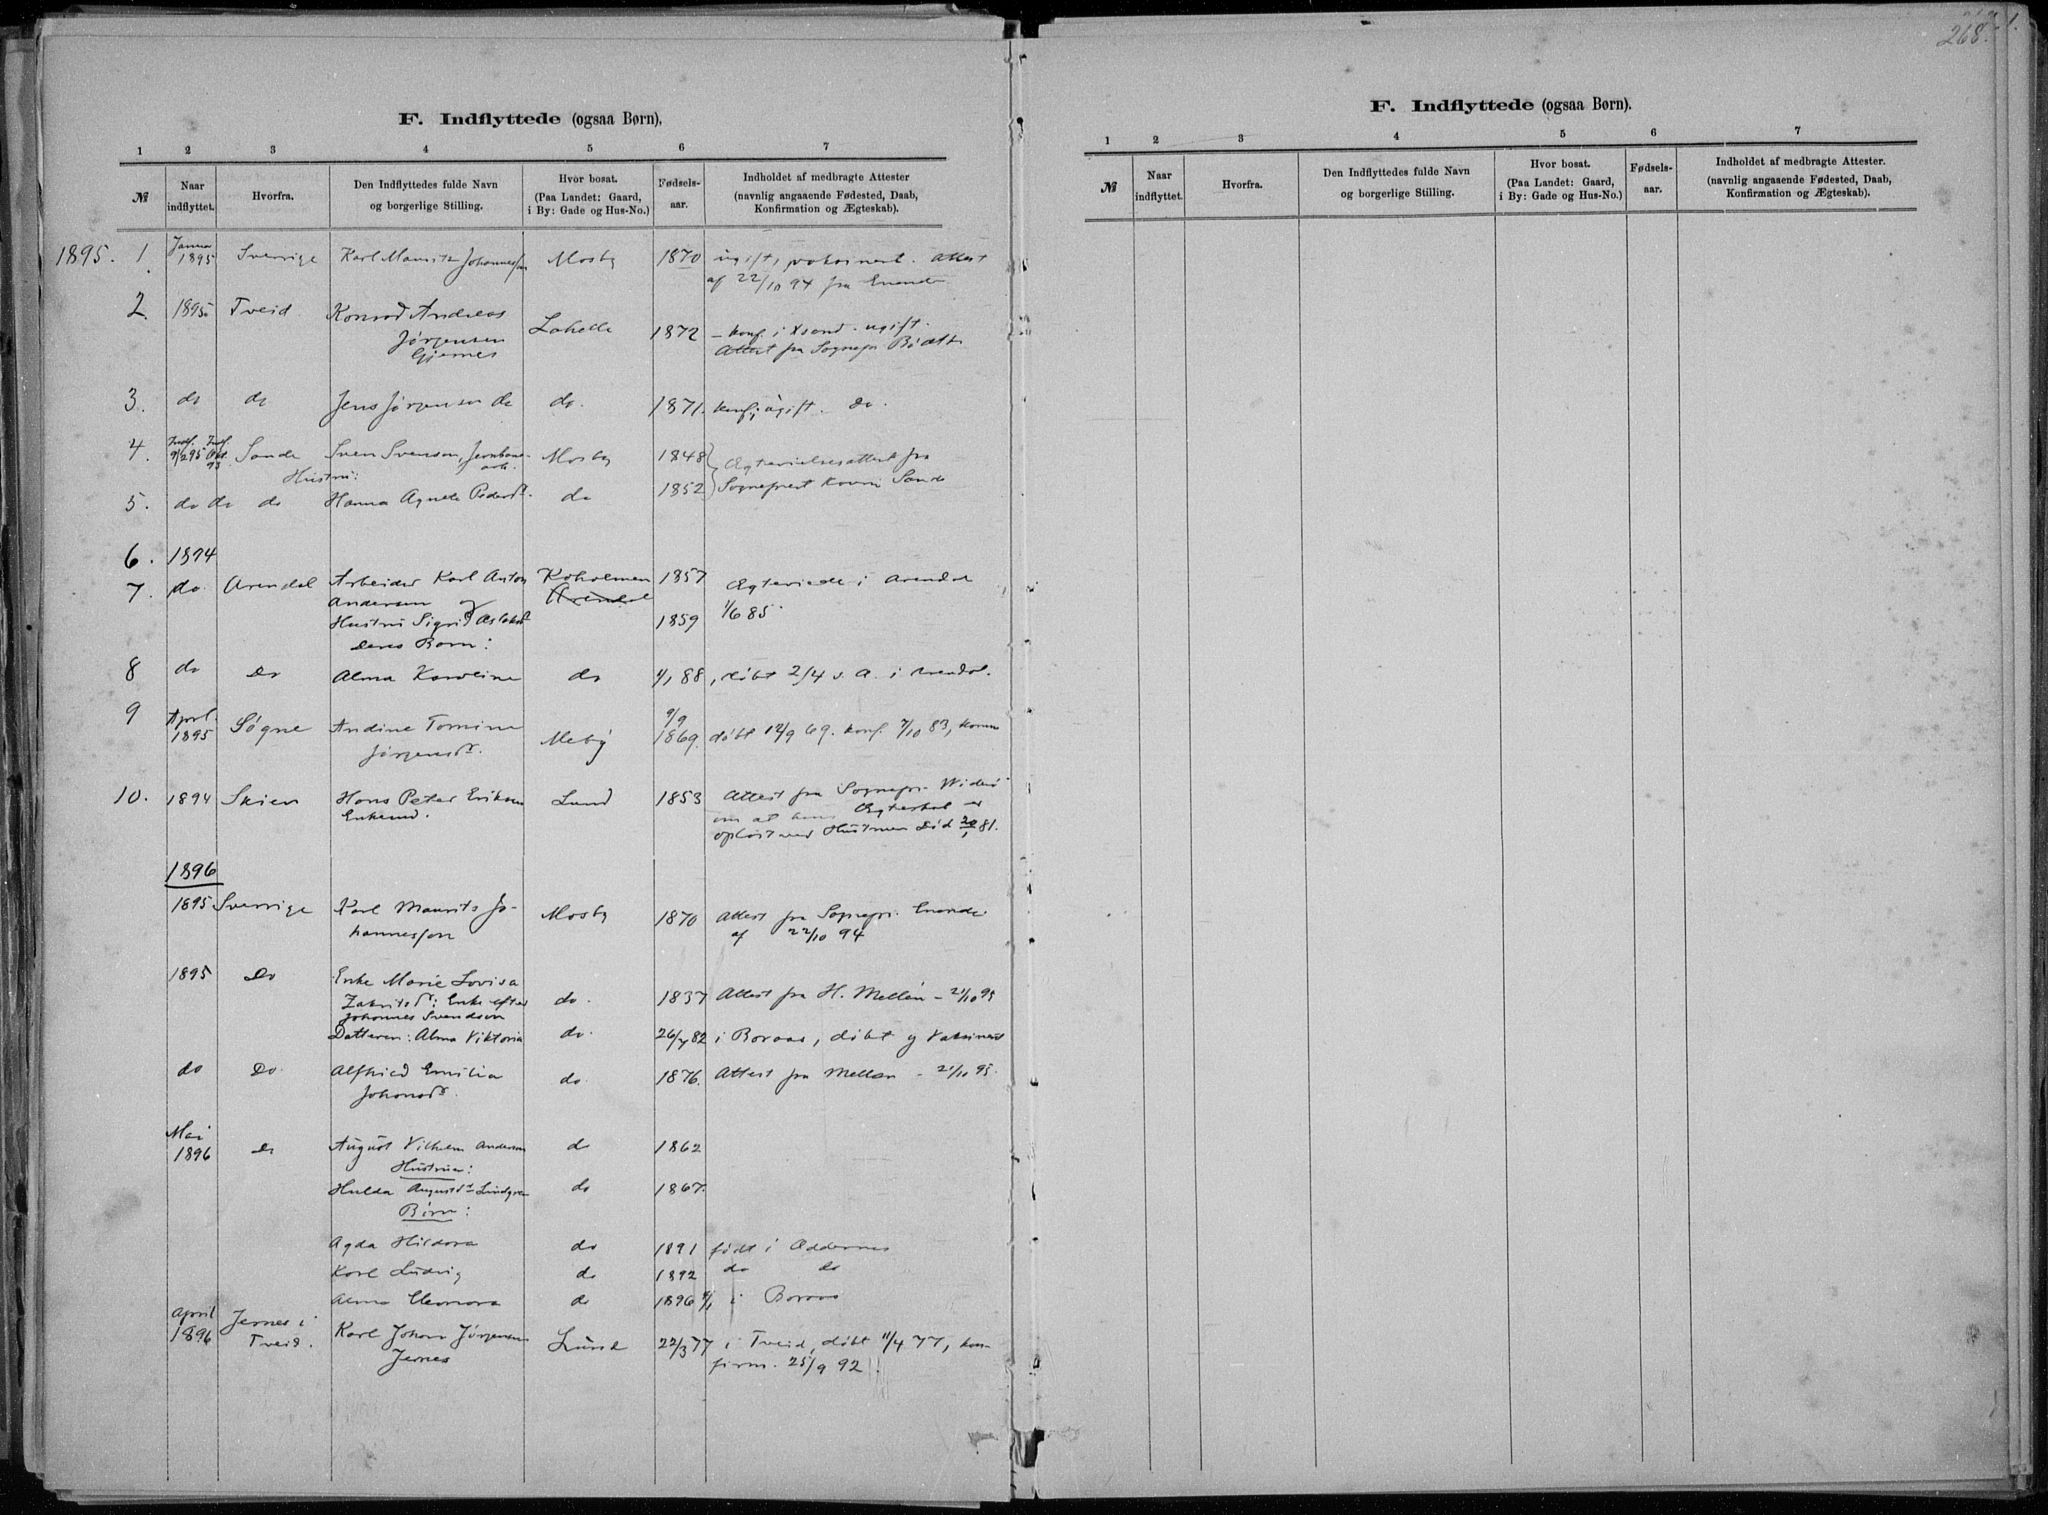 F. Indflyttede (ogsaa Børn),
1 2 3 4 5 6 7
№ Naar indflyttet. Hvorfra. Den Indflyttedes fulde Navn og borgerlige Stilling. Hvor bosat. (Paa Landet: Gaard, i By: Gade og Hus-No.) Fødsels-aar. Indholdet af medbragte Attester (navnlig angaaende Fødested, Daab, Konfirmation og Ægteskab).
1895. 1. Janua 1895 Sverrige Karl Mauritz Johannessen Mosby 1870 ugift, vaksinert. Attest
af 22/10 94 fra
2. 1895 Tveid Konrad Andreas
Jørgensen
Gjernes
1872 – konf. i Xsand. ugift.
Attest fra Sognepr
3. do do Jens Jørgensen do do. 1871. konf; ugift. do.
4. 9/2 95 Sande Sven Svenson, Mosby 1848 Ægtevielsesattest fra
Hustru:
5. do do do Hanna Agnete Peders d. do 1852 Sogneprest Sande
6. 1894
7. do. Arendal Arbeider Karl Anton Koholmen 1857 Ægteviede i Arendal
Andersen og Arendal
Hustru Sigrid 1859 1/6 85.
Deres Børn:
8 do Do Alma Karoline do 1/1 88, døbt 2/4 s. A. i Arendal.
9 April 1895 Søgne Andine Tomine Meby 9/9 1869. døbt 12/9 69. konf. 7/10 83,
Jørgensd.
10. 1894 Skien Hans Peter Eriksen Lund 1853 Attest fra Sognepr.
Enkemd. om at hans Ægteskab er
opløst ved Hustruens Død 20/1 81.
1896
1895 Sverrige Karl Maurits Jo- Mosby 1870 Attest fra Sognepr.
hannesson af 22/10 94
1895 Do Enke Marie Lovisa
Enke efter do. 1837 Attest fra H. Mellen – 21/10 95
Johannes Svendson
Datteren: Alma Viktoria do. 26/7 82 i Boraas, døbt og Vaksinert
do Do. Alfhild Emilia do. 1876. Attest fra Mellen – 21/10 95.
Mai
1896 Do August Vilhelm Andersen do 1862
Hustrue:
Hulda Augustd. Lindgren do 1867.
Børn:
Agda Hildora do 1891 født i Oddernes
Karl Ludvig do 1892 do do
Alma Eleonora do 1896 i Boraas
April
1896 Jernes i Tveid. Karl Johan Jørgensen Lund 22/3 77 i Tveid, døbt 11/4 77, kon-
Jernes firm. 25/9 92.
268.
F. Indflyttede (ogsaa Børn).
1 2 3 4 5 6 7
№ Naar indflyttet. Hvorfra. Den Indflyttedes fulde Navn og borgerlige Stilling. Hvor bosat. (Paa Landet: Gaard, i By: Gade og Hus-No.) Fødsels-aar. Indholdet af medbragte Attester. (navnlig angaaende Fødested, Daab, Konfirmation og Ægteskab).